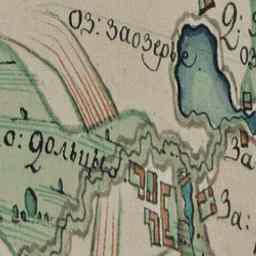 оз: заозерье
2:
о: долъцы
За
За: